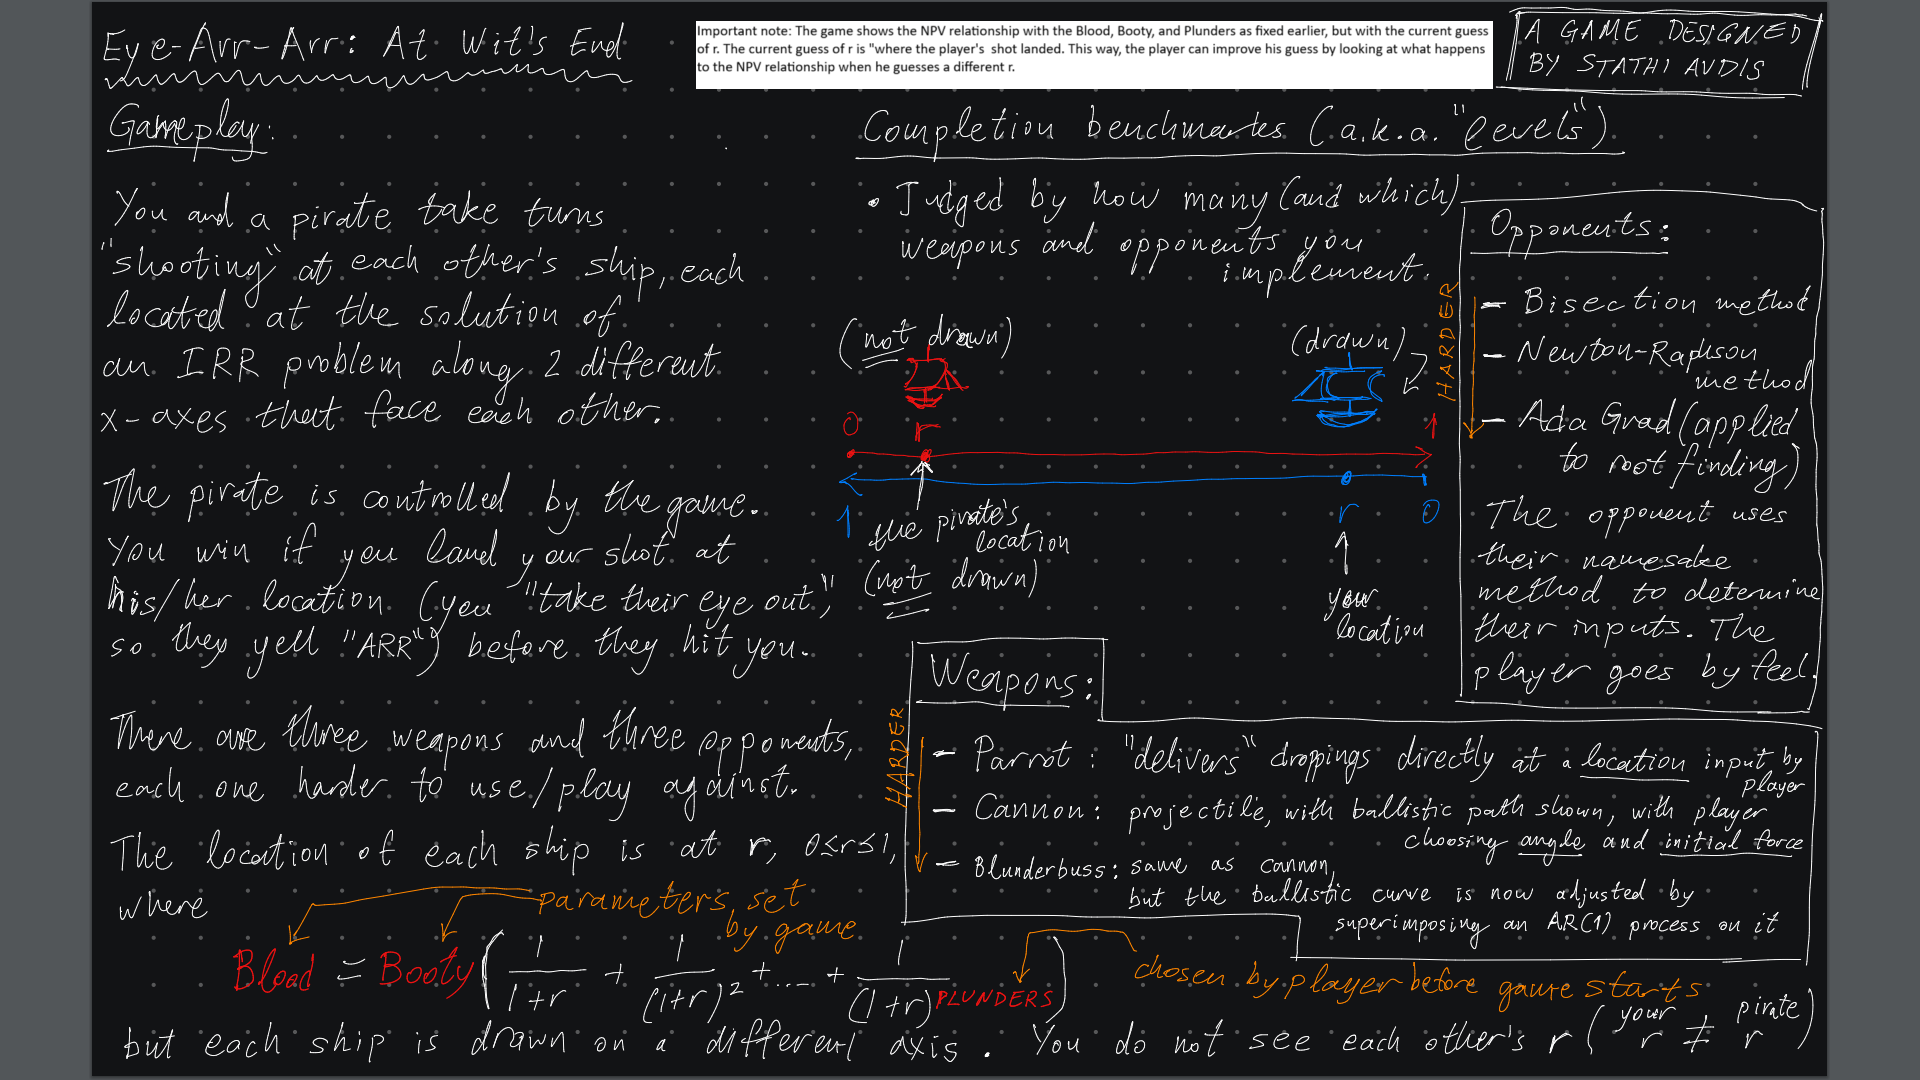 Eye-Arr-Arr: At Wit's End
Important note: The game shows the NPV relationship with the Blood, Booty, and Plunders as fixed earlier, but with the current guess
of r. The current guess of r is "where the player's shot landed. This way, the player can improve his guess by looking at what happens
to the NPV relationship when he guesses a different r.
A GAME DESIGNED
BY STATHI AVDIS
Gameplay:
You and a pirate take turns
"shooting" at each other's ship, each
located at the solution of
an IRR problem along 2 different
x-axes that face each other.
The pirate is controlled by the game.
You win if you land your shot at
his/her location (you "take their eye out,"
so they yell "ARR") before they hit you.
There are three weapons and three opponents,
each one harder to use/play against.
The location of each ship is at r, 0≤r≤1,
where
parameters set
by game
Blood = Booty ( 1/(1+r) + 1/(1+r)² + .... + 1/(1+r)^PLUNDERS )
chosen by player before game starts
but each ship is drawn on a different axis. You do not see each other's r (your r ≠ pirate r)
Completion benchmarks (a.k.a. "levels")
• Judged by how many (and which)
weapons and opponents you
implement.
(not drawn)
(drawn)
0
r
1
1
r
0
the pirate's
location
(not drawn)
your
location
HARDER
Opponents:
- Bisection method
- Newton-Raphson
method
- Ada Grad (applied
to root finding)
The opponent uses
their namesake
method to determine
their inputs. The
player goes by feel.
Weapons:
HARDER
- Parrot: "delivers" droppings directly at a location input by
player
- Cannon: projectile, with ballistic path shown, with player
choosing angle and initial force
- Blunderbuss: same as cannon,
but the ballistic curve is now adjusted by
superimposing an AR(1) process on it